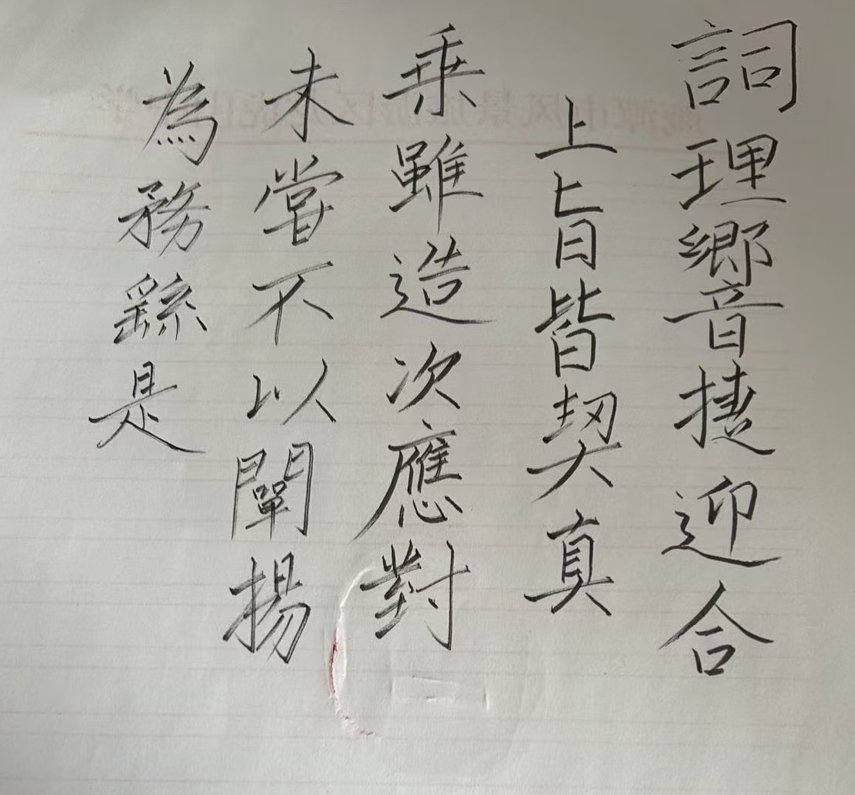 詞理響捷迎合
上旨皆契真
乘雖造次應對
未嘗不以闡揚
為務繇是